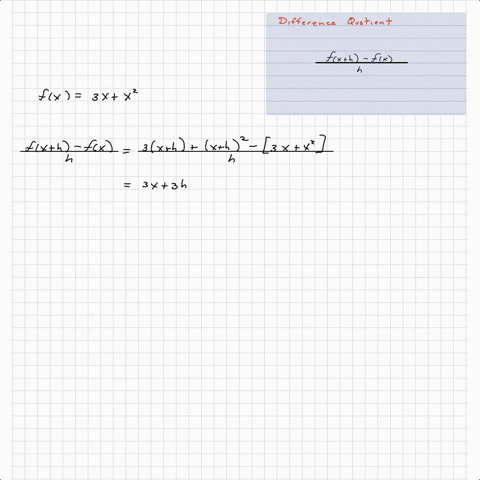 Difference Quotient
f(x+h) - f(x)
h
f(x) = 3x + x²
f(x+h) - f(x) = 3(x+h) + (x+h)² - [3x + x²]
h h
= 3x + 3h